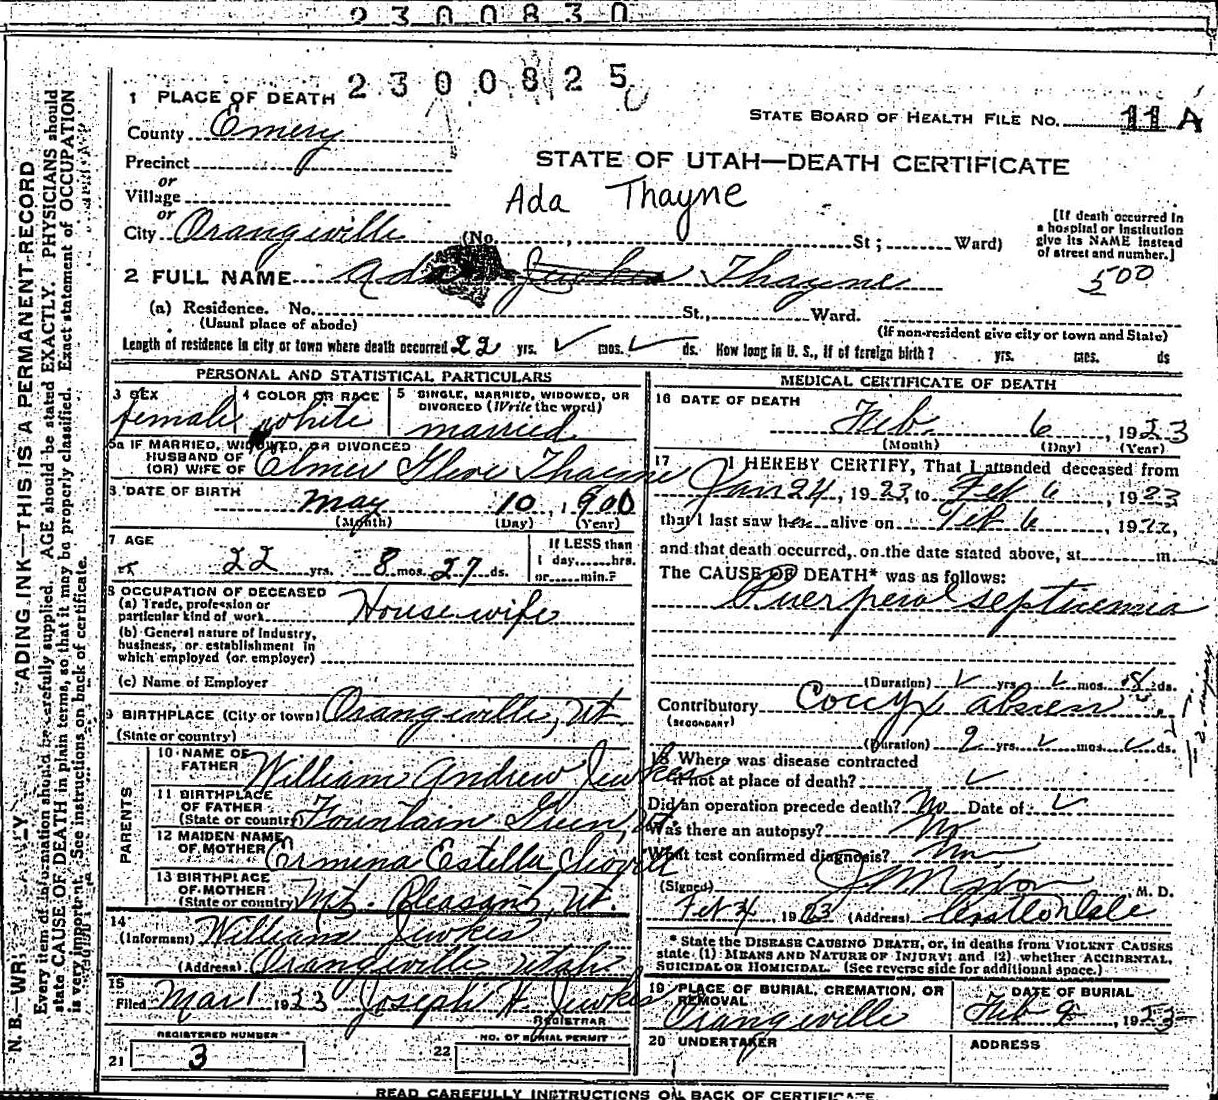 2300830
2300825
1 PLACE OF DEATH
STATE BOARD OF HEALTH FILE No. 11 A
County Emery
STATE OF UTAH—DEATH CERTIFICATE
Precinct
or
Village
Ada Thayne
or
City Orangeville (No. , St; Ward)
[If death occurred in a hospital or institution give its NAME instead of street and number.]
500
2 FULL NAME Ada Jewkes Thayne
(a) Residence. No. St., Ward.
(Usual place of abode) (If non-resident give city or town and State)
Length of residence in city or town where death occurred 22 yrs. mos. ds. How long in U. S., if of foreign birth? yrs. mos. ds
PERSONAL AND STATISTICAL PARTICULARS
3 SEX female
4 COLOR OR RACE white
5 SINGLE, MARRIED, WIDOWED, OR DIVORCED (Write the word) married
5a IF MARRIED, WIDOWED, OR DIVORCED
HUSBAND OF
(OR) WIFE OF Elmer Thayne
6 DATE OF BIRTH May 10, 1900
(Month) (Day) (Year)
7 AGE 22 yrs. 8 mos. 27 ds.
If LESS than 1 day......hrs. or......min.?
8 OCCUPATION OF DECEASED
(a) Trade, profession or particular kind of work Housewife
(b) General nature of Industry, business, or establishment in which employed (or employer)
(c) Name of Employer
9 BIRTHPLACE (City or town) Orangeville, Ut.
(State or country)
PARENTS
10 NAME OF FATHER William Andrew Jewkes
11 BIRTHPLACE OF FATHER (State or country) Fountain Green, Ut.
12 MAIDEN NAME OF MOTHER Ermina Estella
13 BIRTHPLACE OF MOTHER (State or country) Mt. Pleasant, Ut.
14 (Informant) William Jewkes
(Address) Orangeville, Utah
15 Filed Mar 1 1923 Joseph H. Jewkes
REGISTRAR
REGISTERED NUMBER
21 3
NO. OF BURIAL PERMIT
22
MEDICAL CERTIFICATE OF DEATH
16 DATE OF DEATH
Feb. 6, 1923
(Month) (Day) (Year)
17 I HEREBY CERTIFY, That I attended deceased from
Jan 24, 1923, to Feb 6, 1923
that I last saw her alive on Feb 6, 1923,
and that death occurred, on the date stated above, at m.
The CAUSE OF DEATH* was as follows:
Puerperal septicemia
(Duration) yrs. mos. ds.
Contributory Coccyx
(SECONDARY)
(Duration) 2 yrs. mos. ds.
18 Where was disease contracted
if not at place of death?
Did an operation precede death? No Date of
Was there an autopsy? No
What test confirmed diagnosis?
(Signed) M. D.
1923 (Address) Castle Dale
* State the DISEASE CAUSING DEATH, or, in deaths from VIOLENT CAUSES state (1) MEANS AND NATURE OF INJURY; and (2) whether ACCIDENTAL, SUICIDAL or HOMICIDAL. (See reverse side for additional space.)
19 PLACE OF BURIAL, CREMATION, OR REMOVAL Orangeville
DATE OF BURIAL
1923
20 UNDERTAKER
ADDRESS
READ CAREFULLY INSTRUCTIONS ON BACK OF CERTIFICATE
N. B.—WR ADING INK—THIS IS A PERMANENT RECORD
Every item of information should be carefully supplied. AGE should be stated EXACTLY. PHYSICIANS should
state CAUSE OF DEATH in plain terms, so that it may be properly classified. Exact statement of OCCUPATION
is very important. See instructions on back of certificate.